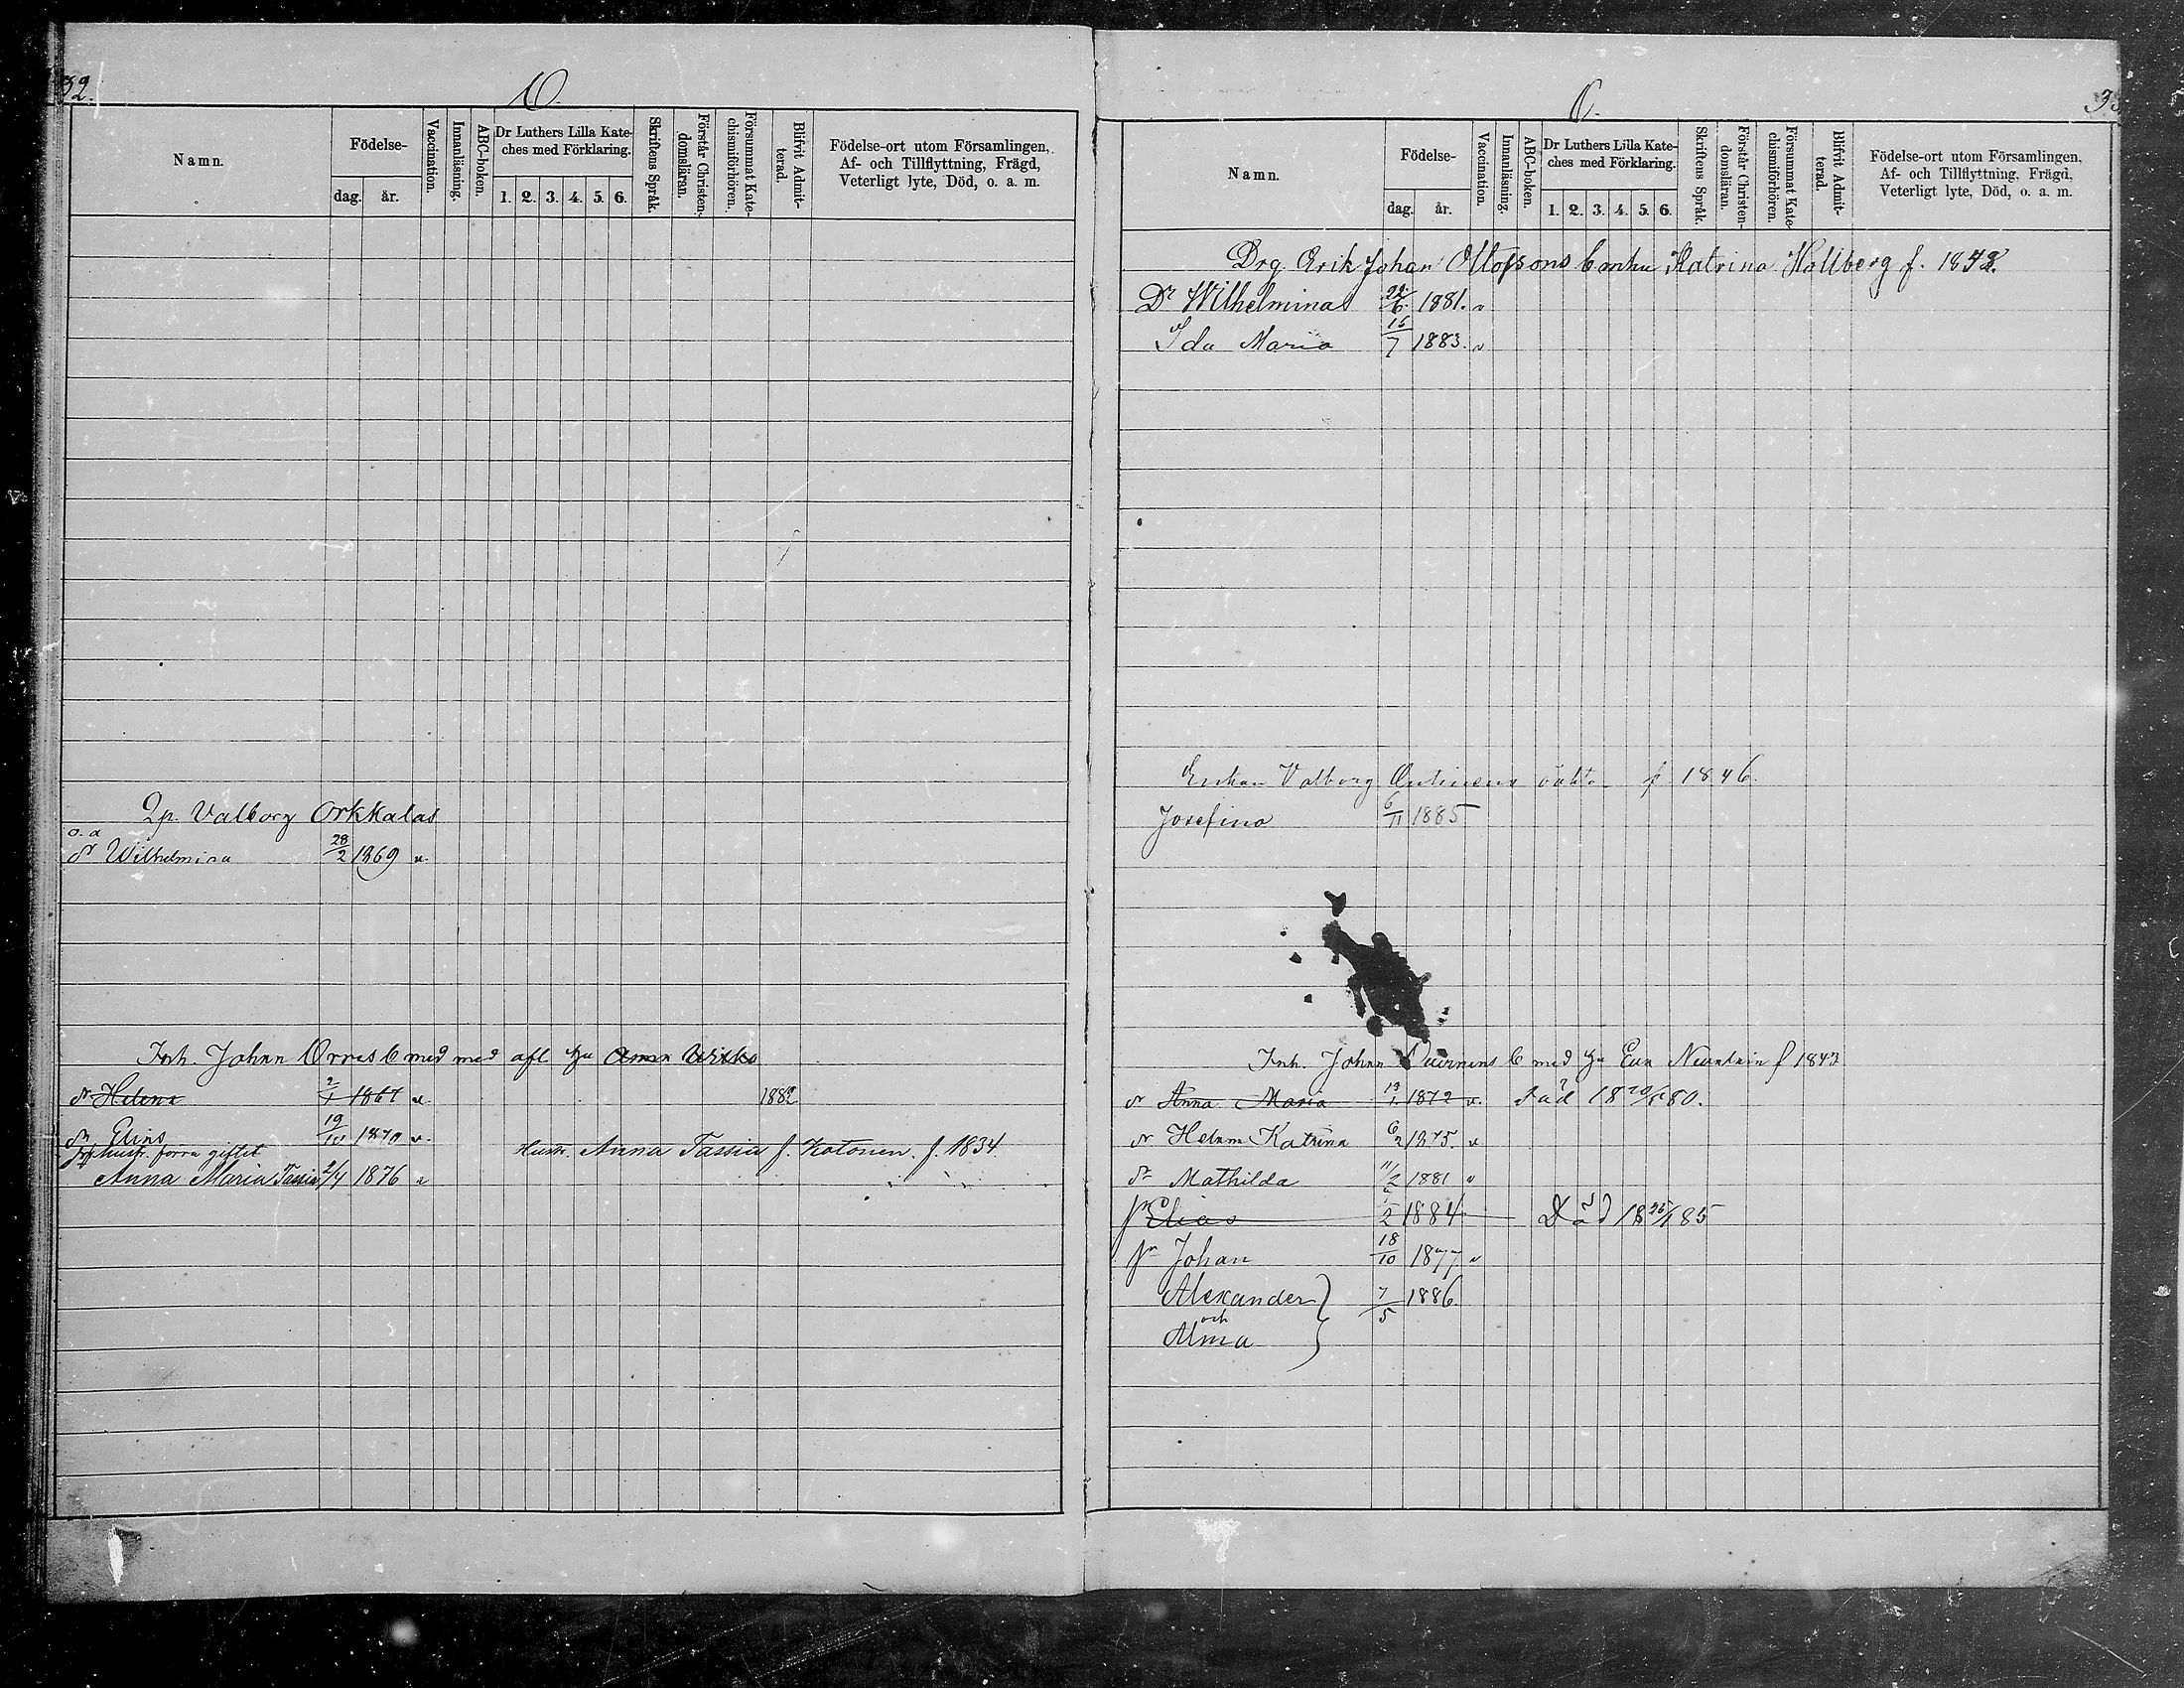 32.
O.
Namn.
Födelse-
dag. år.
Vaccination.
Innanläsning.
ABC-boken.
Dr Luthers Lilla Kate-
ches med Förklaring.
1. 2. 3. 4. 5. 6.
Skriftens Språk.
Förstår Christen-
domsläran.
Försummat Kate-
chismiförhören.
Blifvit Admit-
terad.
Födelse-ort utom Församlingen,
Af- och Tillflyttning, Frägd,
Veterligt lyte, Död, o. a. m.
Qp. Valborg Orkkalas
o. a
dr Wilhelmina 28/2 1869 v.
Inh. Johan Orres b med med afl hu Anna
dr Helena 2/1 1867 v 1882
Elins 19/10 1870 v.
hustr. förra giftet Hustr. Anna Tassia f. Kotonen. f. 1834
Anna Maria Tassia 2/4 1876 v
O.
33
Namn.
Födelse-
dag. år.
Vaccination.
Innanläsning.
ABC-boken.
Dr Luthers Lilla Kate-
ches med Förklaring.
1. 2. 3. 4. 5. 6.
Skriftens Språk.
Förstår Christen-
domsläran.
Försummat Kate-
chismiförhören.
Blifvit Admit-
terad.
Födelse-ort utom Församlingen,
Af- och Tillflyttning, Frägd,
Veterligt lyte, Död, o. a. m.
Drg Erik Johan Ottossons b Katrina Hallberg f. 1848.
Dr Wilhelmina 22/6 1881. v
Ida Maria 16/7 1883. v
Enkan Valborg f 1846.
Josefina 6/11 1885
Inh. Johan b med hu Eva f 1843
dr Anna Maria 19/1 1872 v. Död 18 20/5 80.
dr Helena Katrina 6/2 1875. v
dr Mathilda 11/2 1881 v
sn Elias 1/2 1884 Död 18 26/1 85
sn Johan 18/10 1877 v
Alexander 7/5 1886.
och
Alma